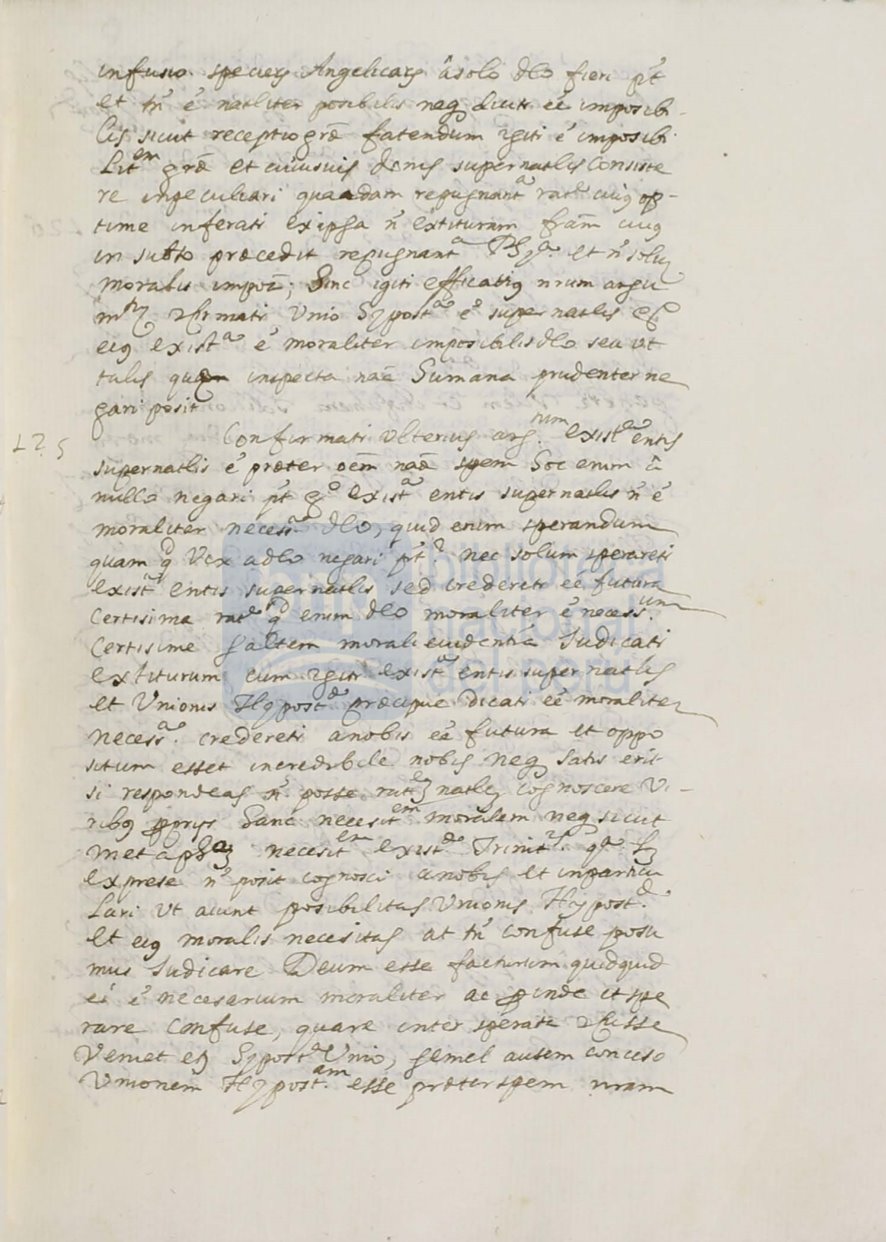 infusio specierẽ Angelicarẽ â solo dẽo fieri p̃t
et tñ é natliter posibilis neq̃ dicitr eé imposibi-
lis sicut receptio grãe fatendum igitr é imposibi
lit.em grãe et cuiusvis donis supernatlis Consiste
re in peculiari quaadam repugnant.a rat.e cuiq op-
time inferatr ex ipsa ñ extituram fram̃ cuiq
in subto præcedit repugnant.a Phy.a et ñ solũ
moralis impoã; hinc igitr efficatiq nrum argu
mtũ Unio Hypost.a é supernatlis
eiq exist.a é moraliter imposibilis dẽo seu ut
talis inspecta naã humana prudenter ne
gari posit
Confirmatr ulterius arg.tum exist.a entis
supernatlis é præter oem̃ naæ spem hoc enim â
nullo negari p̃t g.o exist.a entis supernatlis ñ é
moraliter necess.a dẽo, quid enim sperandum
quam q.d Vix a dẽo negari p̃t? nec solum speraretr
exist.a entis supernatlis sed crederetr eé futura
Certisima rat.e q.d enim dẽo moraliter é necess.um
Certisime saltem morali evidentiã Judicatr
extiturum cum igitr exist.a entis supernatlis
et Unionis Hypost.æ præcipue dicatr eé moraliter
necess.a crederetr a nobis eé futura et oppo
situm esset incredibile nobis neq̃ satis erit
si respondeas ñ posse rat.ẽ natlẽ cognoscere vi-
ribq pprijs hanc necesit.em moralem neq sicut
metaphcã necesit.em exist.æ Trinit.is
exprese ñ posit cognosci a nobis et in particu
lari ut aiunt posibilitas Unionis Hypost.æ
et eiq moralis necesitas at tñ confuse posu
mus Judicare Deum esse facturum quidquid
ei é necesarium moraliter ac pinde et spe
rare confuse, quare inter sperata
Veniet etz Hypost.a Unio, semel autem conceso
Unionem Hypost.am esse præter spem nram